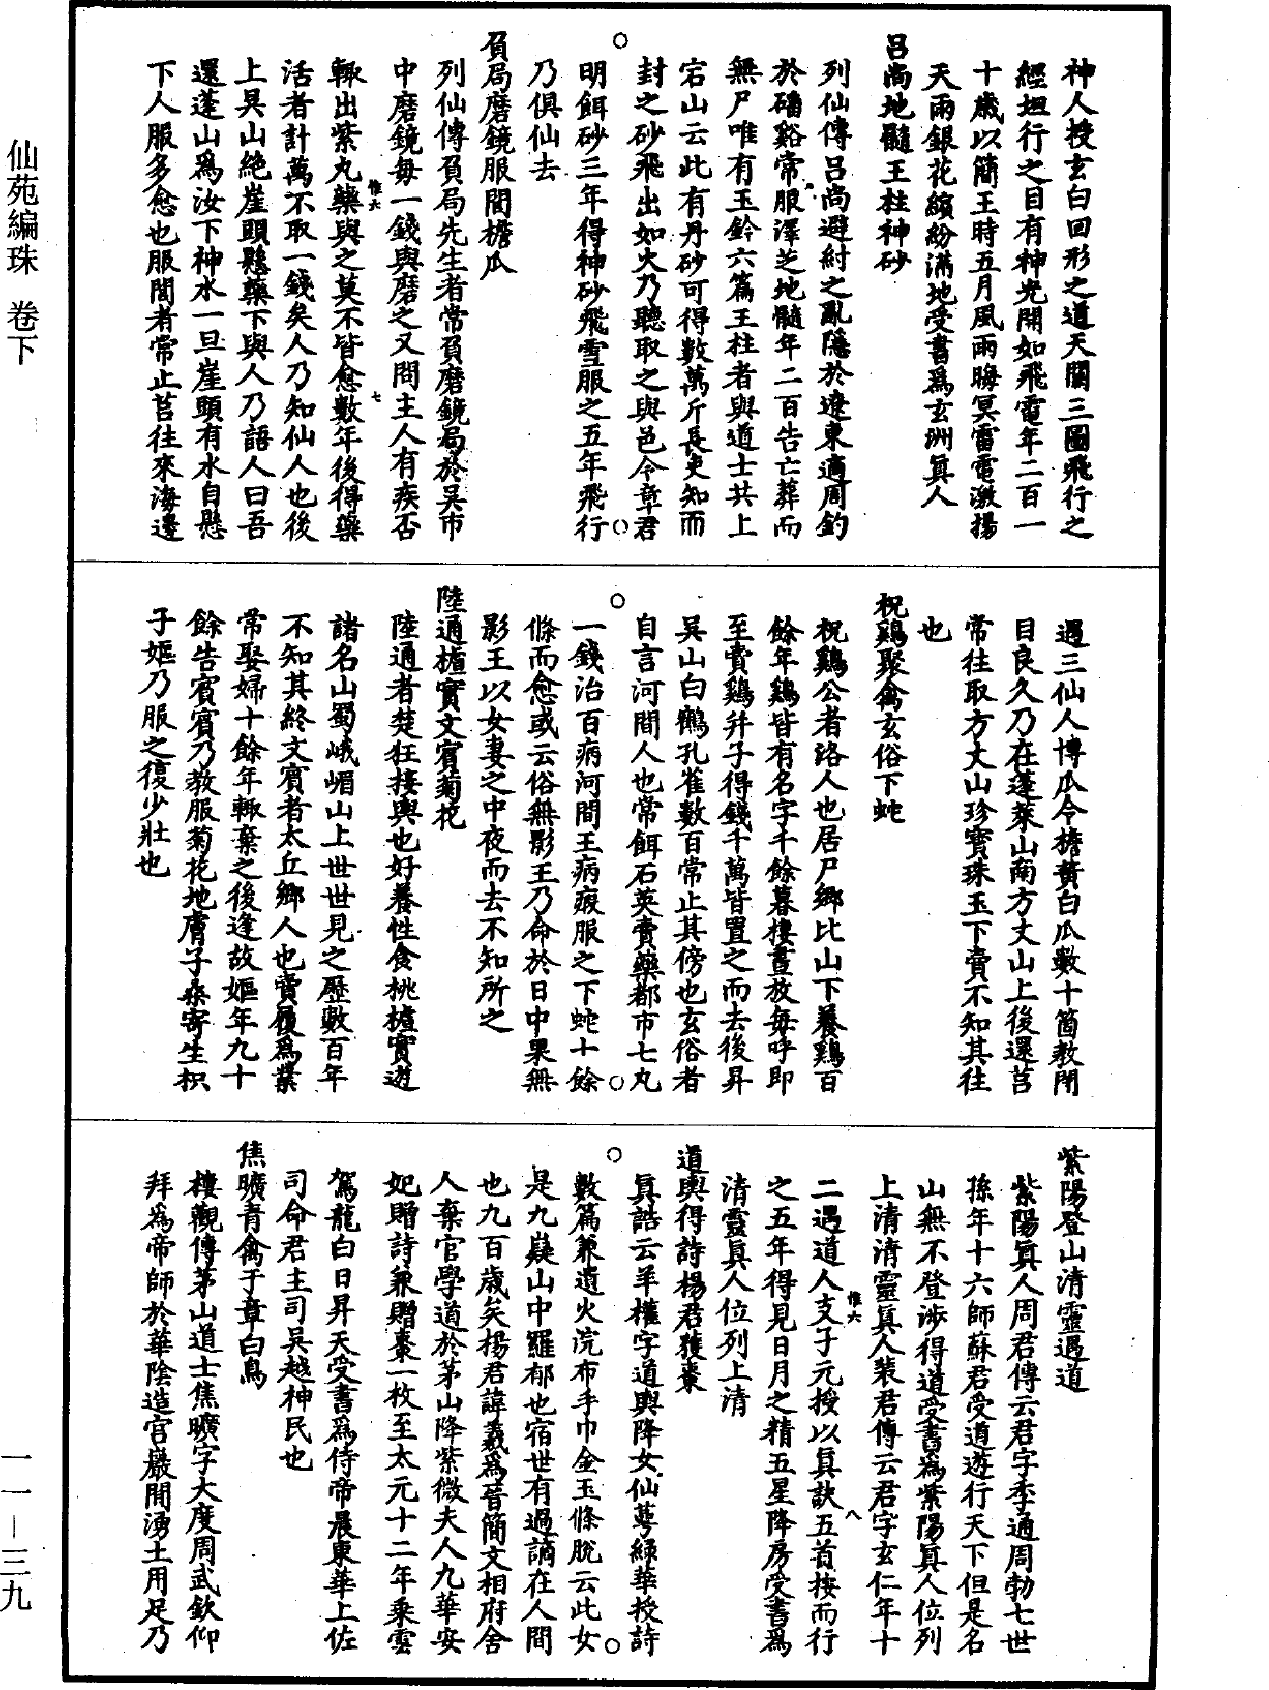 仙苑編珠 卷下
神人授玄白回形之道天關三圖飛行之
經坦行之目有神光開如飛電年二百一
十歲以簡王時五月風雨晦冥雷電激揚
天雨銀花繽紛滿地受書爲玄洲眞人
呂尚地髓王柱神砂
列仙傳呂尚避紂之亂隱於遼東適周釣
於磻谿常服澤芝地髓年二百告亡葬而
無尸唯有玉鈐六篇王柱者與道士共上
宕山云此有丹砂可得數萬斤長吏知而
封之砂飛出如火乃聽取之與邑令章君
明餌砂三年得神砂飛雪服之五年飛行
乃俱仙去
負局磨鏡服閭擔瓜
列仙傳負局先生者常負磨鏡局於吳市
中磨鏡每一錢與磨之又問主人有疾否
輙出紫丸藥與之莫不皆愈數年後得藥
活者計萬不取一錢矣人乃知仙人也後
上吳山絶崖頭懸藥下與人乃語人曰吾
還蓬山爲汝下神水一旦崖頭有水自懸
下人服多愈也服閭者常止莒往來海邊
惟六
七
遇三仙人博瓜令擔黃白瓜數十箇教閉
目良久乃在蓬萊山南方丈山上後還莒
常往取方丈山珍寶珠玉下賣不知其往
也
祝鷄聚禽玄俗下蛇
祝鷄公者洛人也居尸鄉比山下養鷄百
餘年鷄皆有名字千餘暮棲晝放每呼即
至賣鷄幷子得錢千萬皆置之而去後昇
吳山白鶴孔雀數百常止其傍也玄俗者
自言河間人也常餌石英賣藥都市七丸
一錢治百病河間王病瘕服之下蛇十餘
條而愈或云俗無影王乃命於日中果無
影王以女妻之中夜而去不知所之
陸通櫨實文賓菊花
陸通者楚狂接輿也好養性食桃櫨實遊
諸名山蜀峨嵋山上世世見之歷數百年
不知其終文賓者太丘鄉人也賣履爲業
常娶婦十餘年輙棄之後逢故嫗年九十
餘告賓賓乃教服菊花地膚子桑寄生枳
子嫗乃服之復少壯也
紫陽登山清靈遇道
紫陽眞人周君傳云君字季通周勃七世
孫年十六師蘇君受道遊行天下但是名
山無不登涉得道受書爲紫陽眞人位列
上清清靈眞人裴君傳云君字玄仁年十
二遇道人支子元授以眞訣五首按而行
之五年得見日月之精五星降房受書爲
清靈眞人位列上清
惟六
八
道輿得詩楊君獲棗
眞誥云羊權字道輿降女仙萼綠華授詩
數篇兼遺火浣布手巾金玉條脫云此女
是九嶷山中羅郁也宿世有過謫在人間
也九百歲矣楊君諱羲爲晉簡文相府舍
人棄官學道於茅山降紫微夫人九華安
妃贈詩兼贈棗一枚至太元十二年乘雲
駕龍白日昇天受書爲侍帝晨東華上佐
司命君主司吳越神民也
焦曠青禽子章白鳥
樓觀傳茅山道士焦曠字大度周武欽仰
拜爲帝師於華陰造宮巖間湧土用足乃
一一—三九